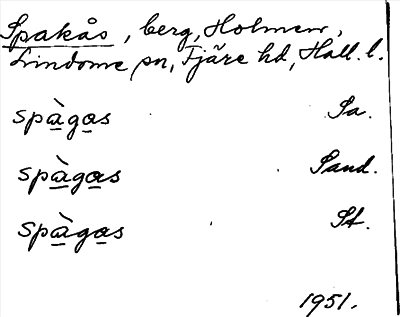 Spakås, berg, Holmen,
Lindome sn, Fjäre hd, Hall. l.
spàgas Sa.
spàgas Sand.
spàgas St.
1951.